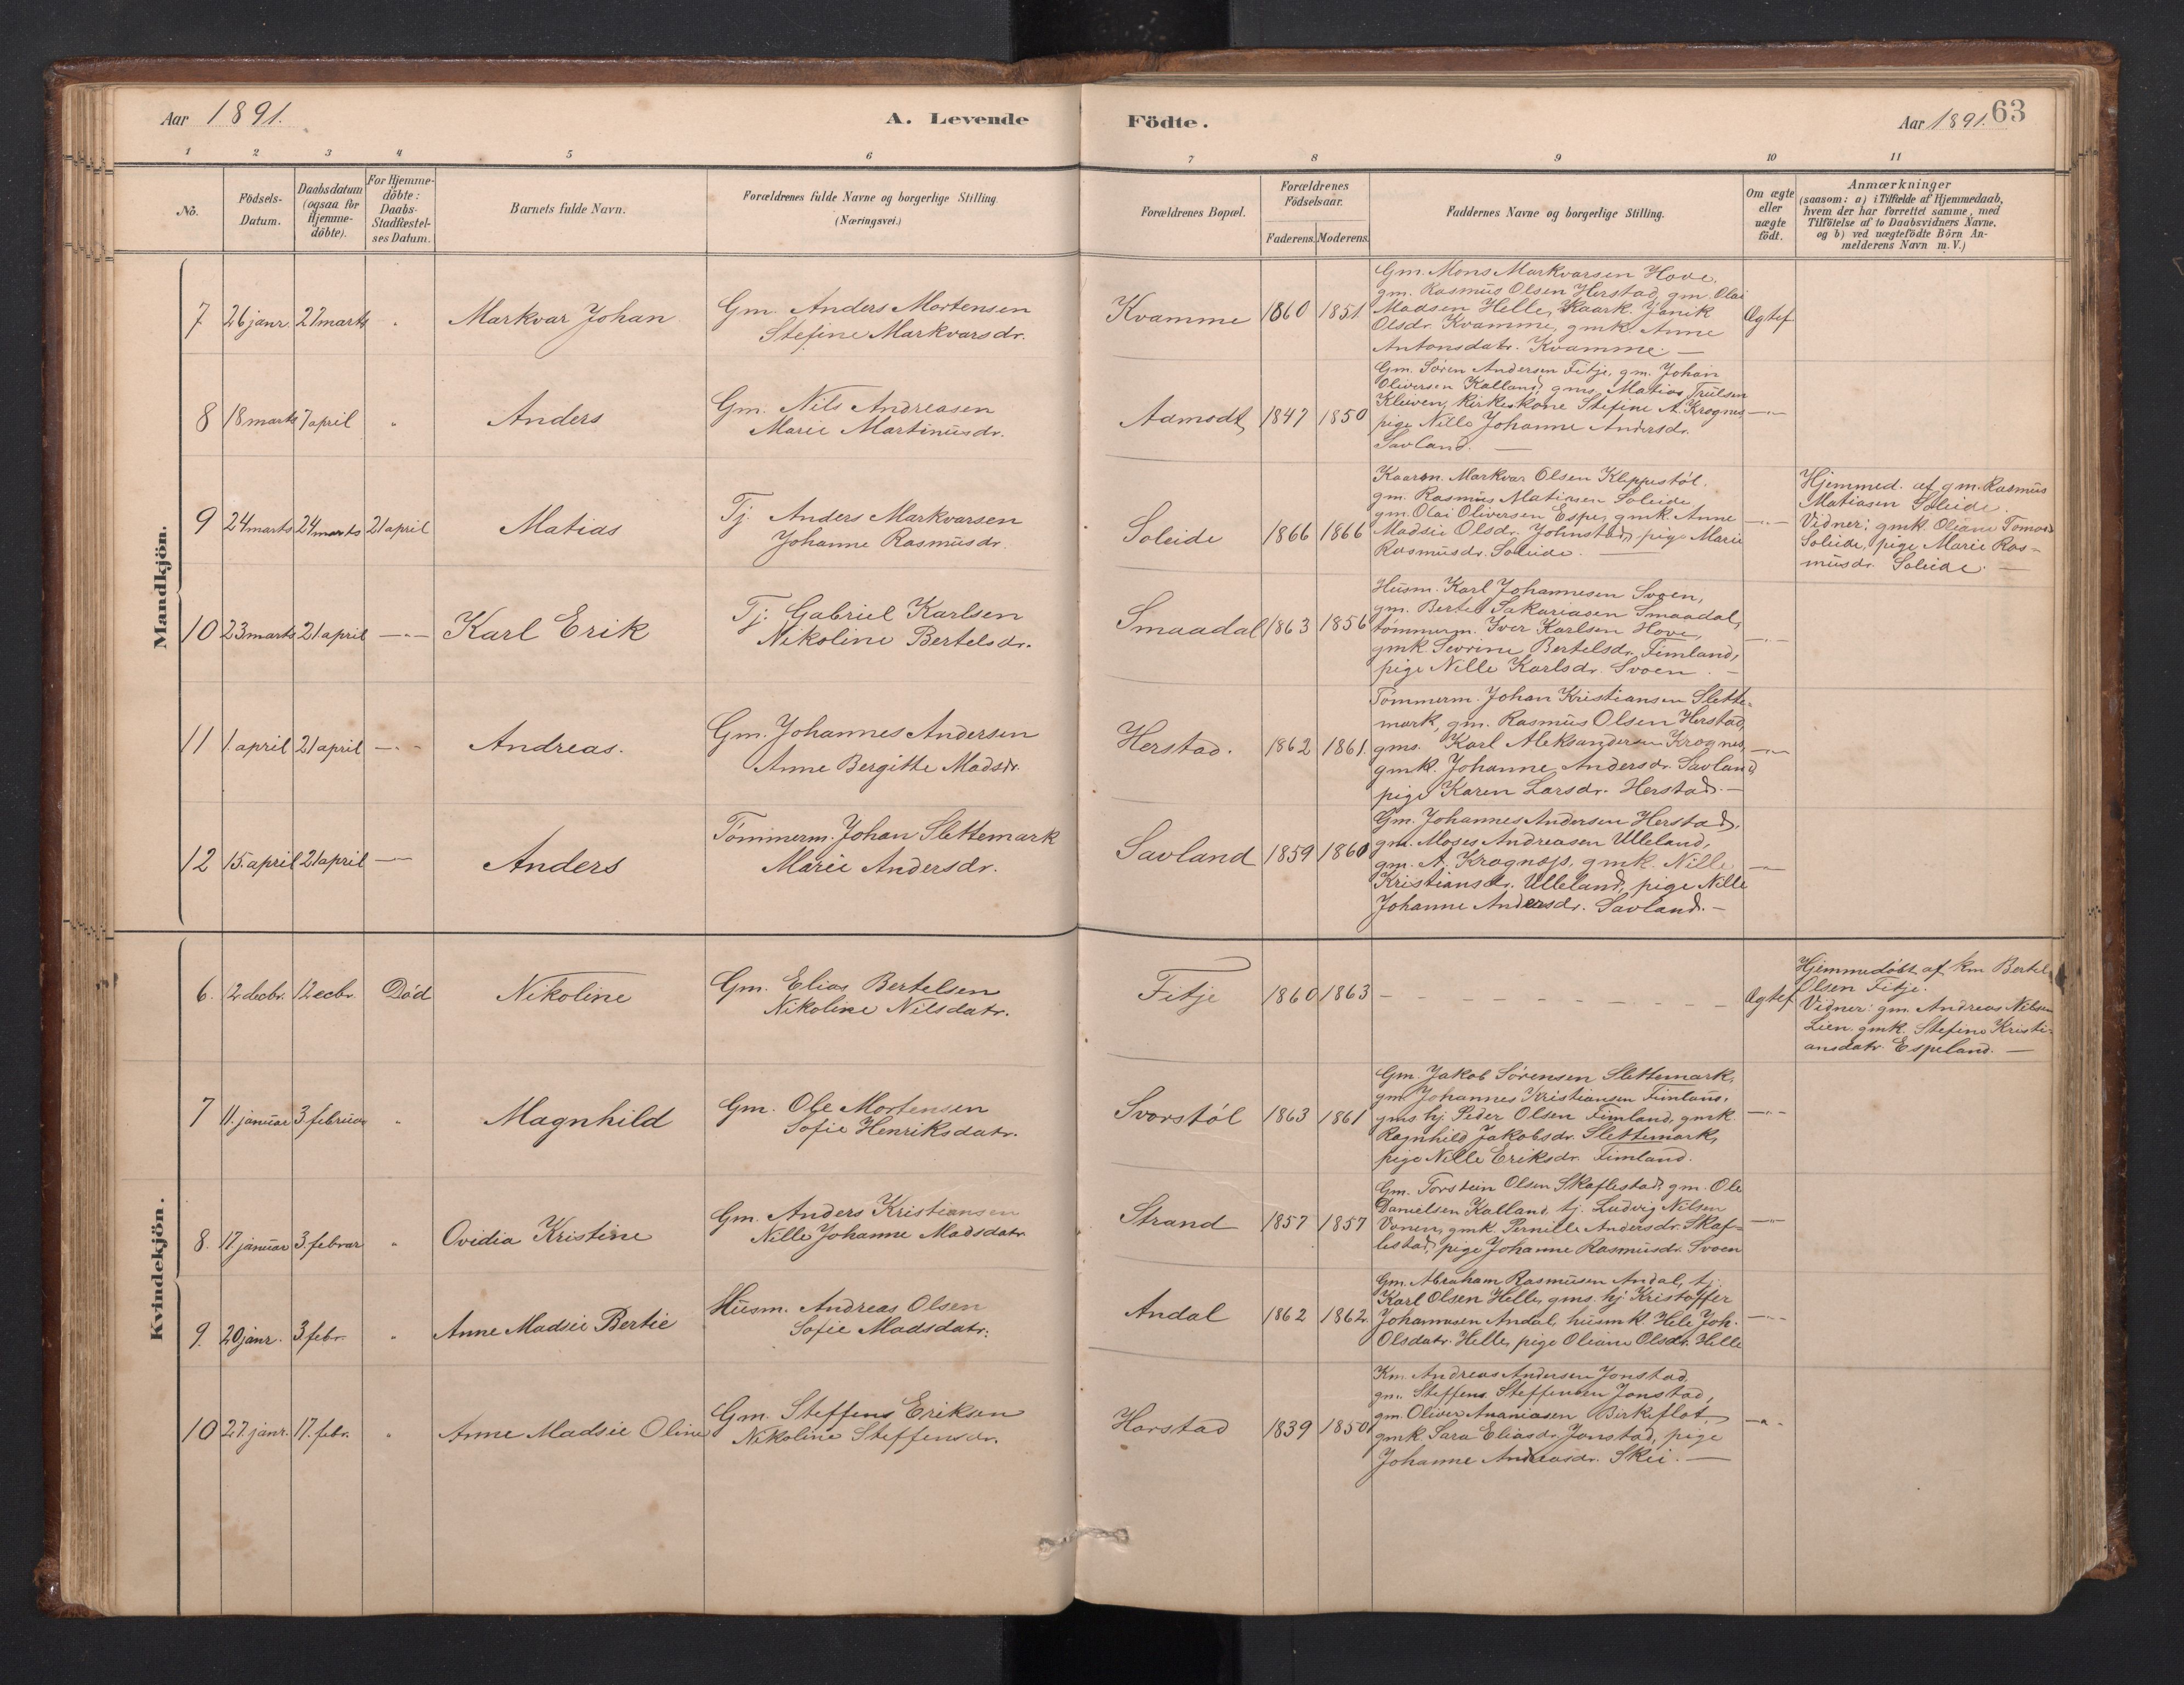 Aar 1891.
A. Levende
Födte.
Aar 1891. 63
1 2 3 4 5 6 7 8 9 10 11
No.
Födsels-
Datum.
Daabsdatum
(ogsaa for
Hjemme-
döbte).
For Hjemme-
döbte:
Daabs-
Stadfæstel-
ses Datum.
Barnets fulde Navn.
Forældrenes fulde Navne og borgerlige Stilling
(Næringsvei.)
Forældrenes Bopæl.
Forældrenes
Födselsaar.
Faderens. Moderens.
Faddernes Navne og borgerlige Stilling.
Om ægte
eller
uægte
födt.
Anmærkninger
(saasom: a) i Tilfælde af Hjemmedaab,
hvem der har forrettet samme, med
Tilföielse af to Daabsvidners Navne.
og b) ved uægtefödte Börn An-
melderens Navn m.V.)
Mandkjön.
7. 26 janr. 27 marts " Markvar Johan
Gm. Anders Mortensen
Stefine Markvarsdr.
Kvamme 1860 1851
Gm. Mons Markvarsen Hove,
gm. Rasmus Olsen Herstad, gm. Olai
Madsen Helle, Kaark. Janik
Olsdr. Kvamme, gmk. Anne
Antonsdatr. Kvamme. —
Ægtef
8 18 marts 7 april " Anders
Gm. Nils Andreasen
Marie Martinusdr.
Aamodt 1847 1850
Gm. Sören Andersen Fitje, gm. Johan
Oliversen Kalland, gms. Matias Trulsen
Kleiven, kirkeskone Stefine A. Krognes
pige Nille Johanne Andersdr.
Savland. —
—"—
9 24 marts 24 marts 21 april Matias
Tj. Anders Markvarsen
Johanne Rasmusdr.
Soleide 1866 1866
Kaarm. Markvar Olsen Kleppestöl.
gm. Rasmus Matiasen Soleide,
gm. Olai Oliversen Espe, gmk. Anne
Madsie Olsdr. Johnstad, pige Marie
Rasmusdr. Soleide. —
—"—
Hjemmed. af gm. Rasmus
Matiasen Soleide.
Vidner: gmk. Oliane Tomasd
Soleide, pige Marie Ras-
musdr. Soleide. —
10 23 marts 21 april —"— Karl Erik
Tj. Gabriel Karlsen
Nikoline Bertelsdr.
Smaadal 1863 1856
Husm. Karl Johannesen Svoen,
gm. Bertel Sakariasen Smaadal,
tömmerm. Iver Karlsen Hove,
gmk. Sevrine Bertelsdr. Fimland,
pige Nille Karlsdr. Svoen. —
—"—
11 1. april 21 april —"— Andreas.
Gm. Johannes Andersen
Anne Bergitte Madsdr.
Herstad. 1862 1861.
Tömmerm. Johan Kristiansen Slette-
mark, gm. Rasmus Olsen Herstad,
gms. Karl Aleksandersen Krognes,
gmk. Johanne Andersdr. Savland
pige Karen Larsdr. Herstad. —
—"—
12 15. april 21 april —"— Anders
Tömmerm. Johan Slettemark
Marie Andersdr.
Savland 1859 1860
Gm. Johannes Andersen Herstad,
gm. Moses Andreasen Ulleland,
gm. A. Krognæs, gmk. Nille
Kristiansdr. Ulleland, pige Nille
Johanne Andersdr. Savland. —
—"—
Kvindekjön.
6. 12 decbr. 12 ecbr. Död Nikoline
Gm. Elias Bertelsen
Nikoline Nilsdatr.
Fitje 1860 1863 — — — — — — —
Ægtef
Hjemmedöbt af km. Bertel
Olsen Fitje.
Vidner: gm. Andreas Nilsen
Lien, gmk. Stefine Kristi-
ansdatr. Espeland. —
7 11. januar 3 februar " Magnhild
Gm. Ole Mortensen
Sofie Henriksdatr.
Svorstöl 1863 1861
Gm. Jakob Sörensen Slettemark,
gm. Johannes Kristiansen Fimland,
gms hj Peder Olsen Fimland, gmk.
Ragnhild Jakobsdr. Slettemark,
pige Nille Eriksdr. Fimland.
—"—
8. 17 januar 3. februar " Ovidia Kristine
Gm. Anders Kristiansen
Nille Johanne Madsdatr.
Strand 1857 1857
Gm. Torstein Olsen Skaflestad, gm. Ole
Danielsen Kalland, tj. Ludvig Nilsen
Vonen, gmk. Pernille Andersdr. Skaf-
lestad, pige Johanne Rasmusdr. Svoen
—"—
9. 20 janr. 3 febr. " Anne Madsie Bertie
Husm. Andreas Olsen
Sofie Madsdatr.
Andal 1862 1862.
Gm. Abraham Rasmusen Andal, tj.
Karl Olsen Helle, gms. hj Kristoffer
Johannesen Andal, husmk. Hele Joh.
Olsdatr. Helle, pige Oliane Olsdr. Helle
—"—
10 27. janr. 17. febr. " Anne Madsie Oline
Gm. Steffens Eriksen
Nikoline Steffensdr.
Harstad 1839 1850
Km. Andreas Andersen Jonstad,
gm. Steffens Steffensen Jonstad,
gm. Oliver Ananiasen Birkeflot,
gmk. Sara Eliasdr. Jonstad, pige
Johanne Andreasdr. Skei. —
—"—